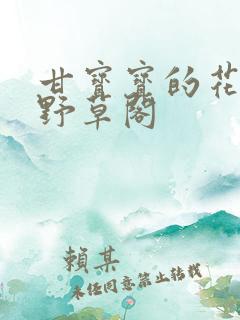 甘寶寶的花
野草閣
賴某
未经同意禁止转载